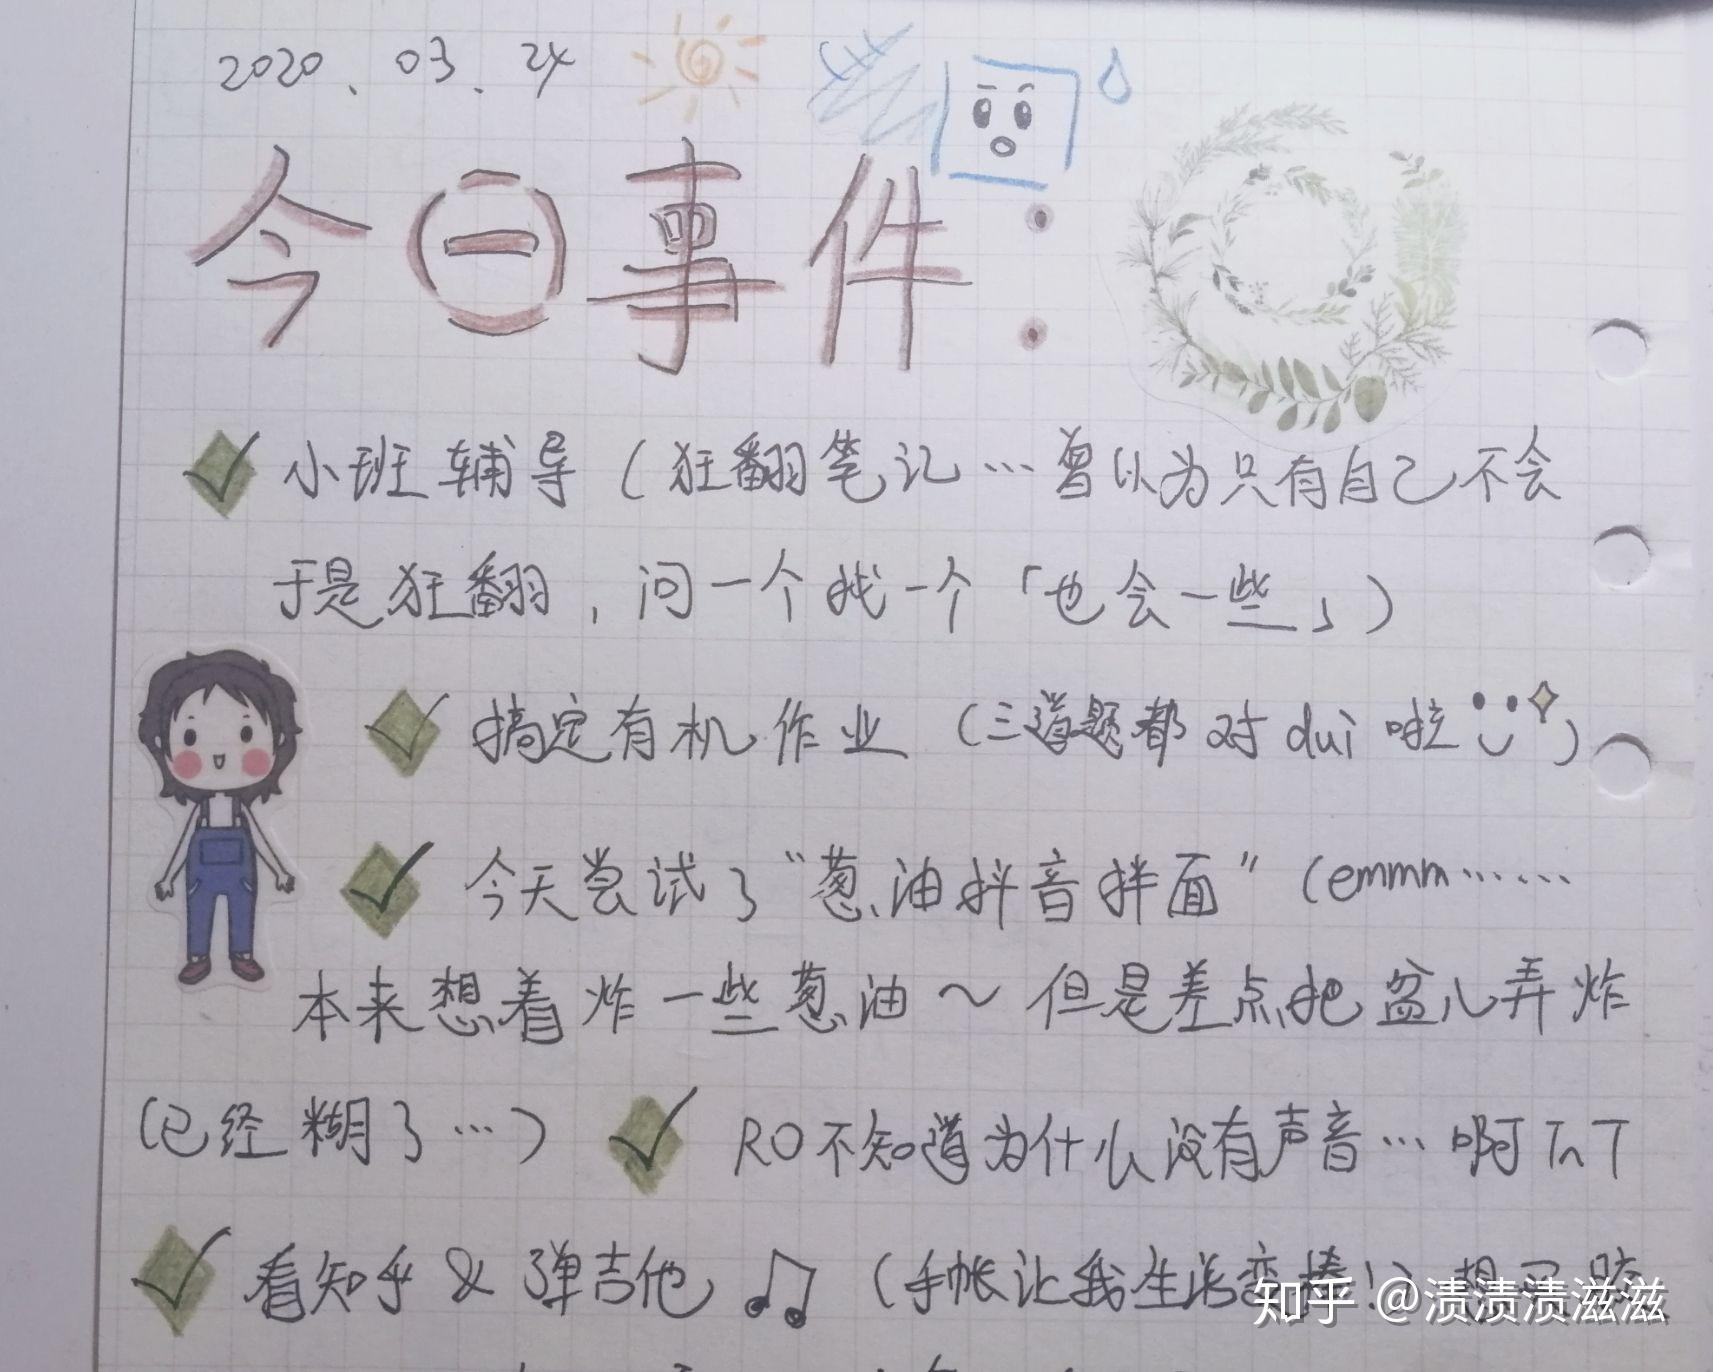 2020.03.24
今日事件：
小班辅导（狂翻笔记…曾以为只有自己不会
于是狂翻，问一个找一个「也会一些」）
搞定有机作业（三道题都对dui啦）
今天尝试了“葱油抖音拌面”（emmm……
本来想着炸一些葱油～但是差点把盆儿弄炸
（已经糊了…）
RO不知道为什么没有声音…啊TnT
看知乎&弹吉他（手帐让我生活变棒！）想
知乎 @渍渍渍滋滋